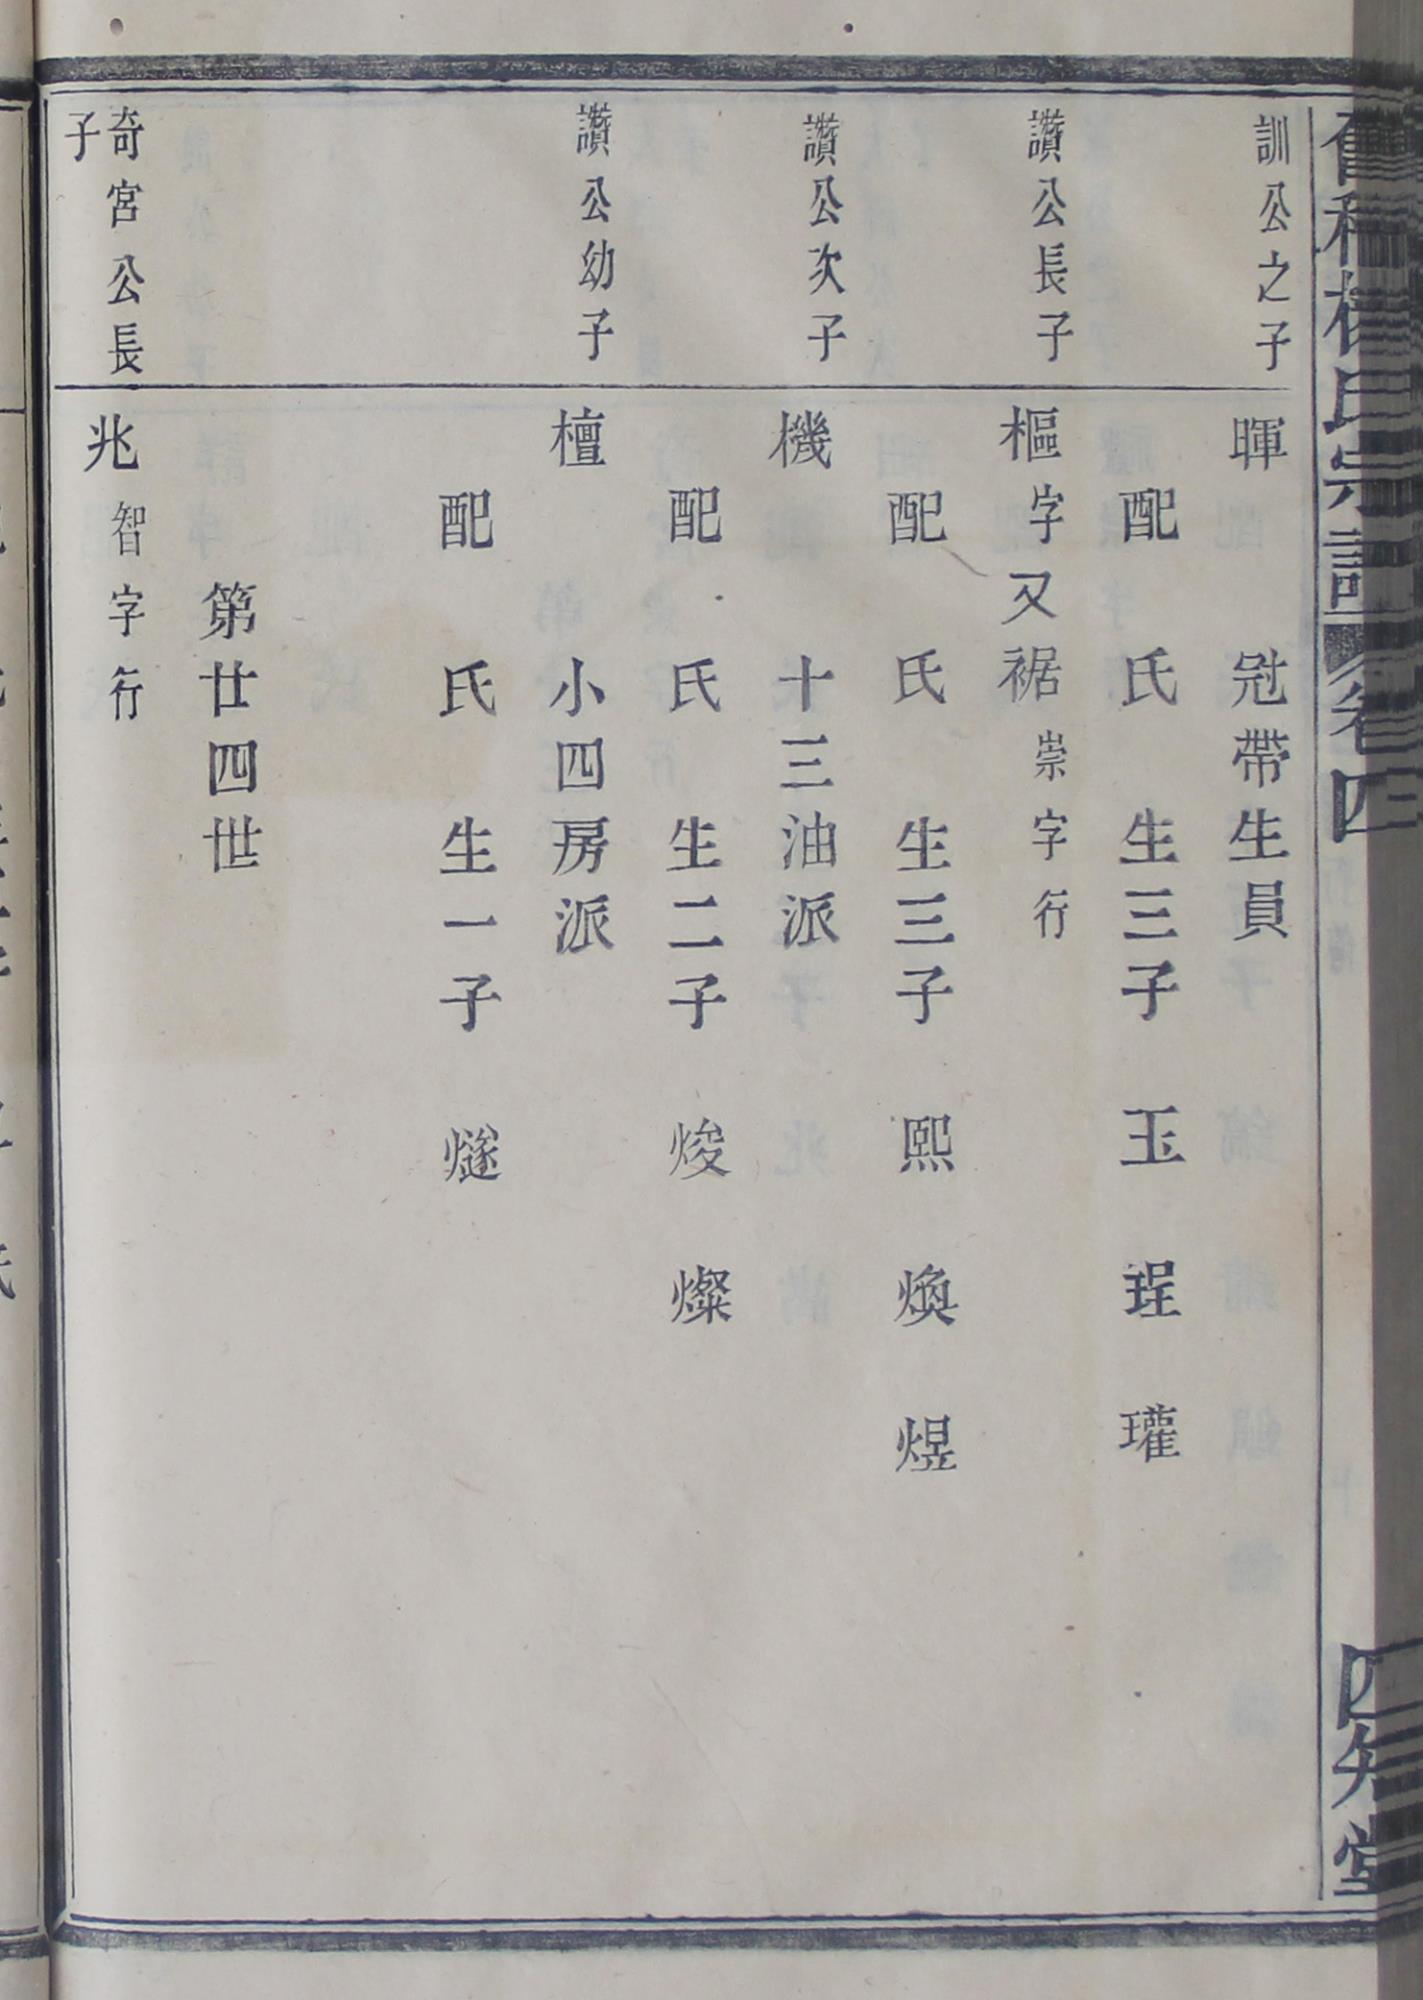 氏宗譜 卷四 四知堂
訓公之子
暉 冠帶生員
配 氏 生三子 玉 珵 瓘
讚公長子
樞字又裾崇字行
配 氏 生三子 熙 煥 煜
讚公次子
機 十三油派
配 氏 生二子 焌 燦
讚公幼子
檀 小四房派
配 氏 生一子 燧
第廿四世
奇宮公長子
兆智字行